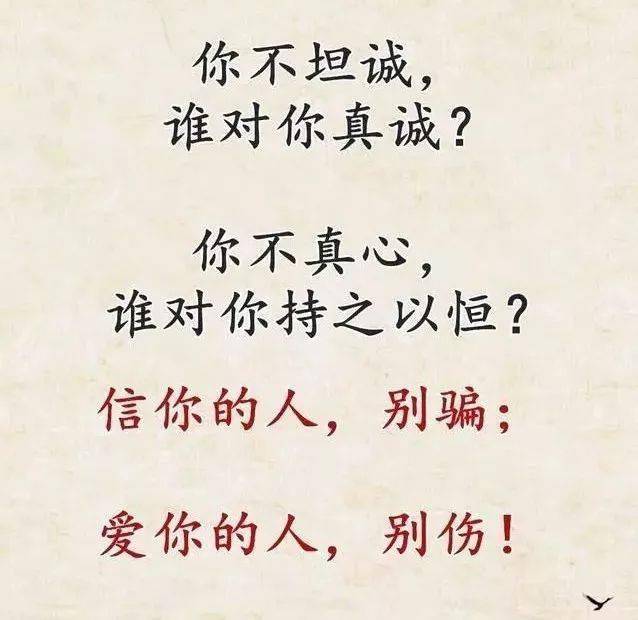 你不坦诚，
谁对你真诚？
你不真心，
谁对你持之以恒？
信你的人，别骗；
爱你的人，别伤！